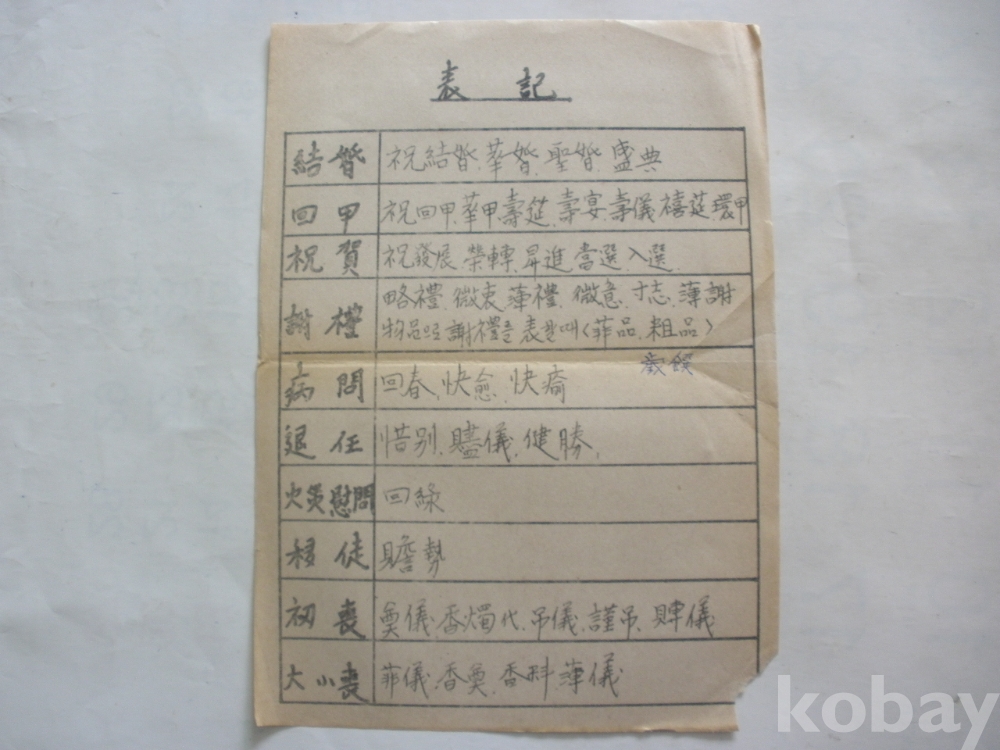 表記
結婚 祝結婚、華婚、聖婚、盛典
回甲 祝回甲、華甲、壽筵、壽宴、壽儀、禧筵、環甲
祝賀 祝發展、榮轉、昇進、當選、入選
謝禮 略禮、微衷、薄禮、微意、寸志、薄謝
物品으로 謝禮를 表할때(菲品、粗品)
病問 回春、快愈、快痊
退任 惜别、贐儀、健勝、
火災慰問 回綠
移徙
初喪 奠儀、香燭代、吊儀、謹吊、賻儀
大小喪 菲儀、香奠、香料、薄儀
kobay